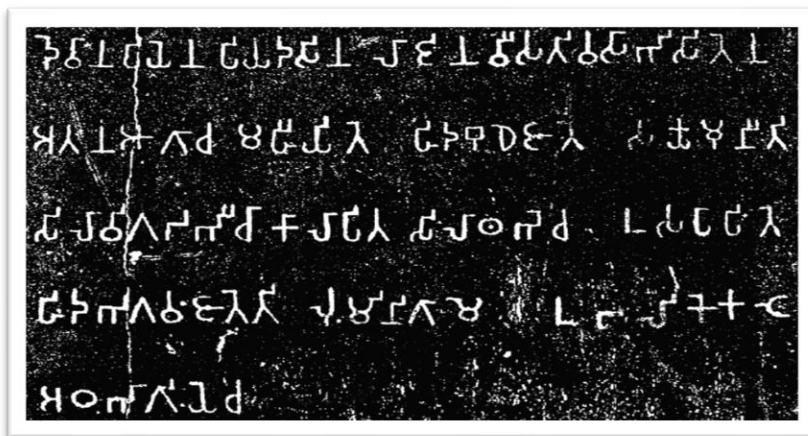 𑀤𑁂𑀯𑀸𑀦𑀧𑀺𑀬𑁂𑀦 𑀧𑀺𑀬𑀤𑀲𑀺𑀦 𑀮𑀸𑀚𑀺𑀦 𑀯𑀻𑀲𑀢𑀺𑀯𑀲𑀸𑀪𑀺𑀲𑀺𑀢𑁂𑀦
𑀅𑀢𑀦 𑀆𑀕𑀸𑀘 𑀫𑀳𑀻𑀬𑀺𑀢𑁂 𑀳𑀺𑀤 𑀩𑀼𑀥𑁂 𑀚𑀸𑀢𑁂 𑀲𑀓𑁆𑀬𑀫𑀼𑀦𑀻𑀢𑀺
𑀲𑀺𑀮𑀸𑀯𑀺𑀕𑀟𑀪𑀻𑀘𑀸𑀓𑀸𑀮𑀸𑀧𑀺𑀢 𑀲𑀺𑀮𑀸𑀣𑀪𑁂𑀘 𑀉𑀲𑀧𑀸𑀧𑀺𑀢𑁂
𑀳𑀺𑀤𑀪𑀕𑀯𑀁𑀚𑀸𑀢𑁂𑀢𑀺 𑀮𑀼𑀁𑀫𑀺𑀦𑀺𑀕𑀸𑀫𑁂 𑀉𑀩𑀮𑀺𑀓𑁂𑀓𑀝𑁂
𑀅𑀞𑀪𑀸𑀕𑀺𑀬𑁂𑀘